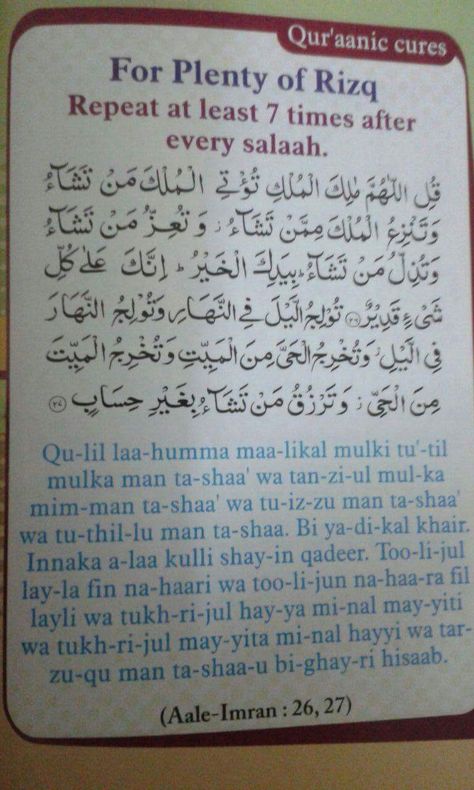 Qur'aanic cures
For Plenty of Rizq
Repeat at least 7 times after
every salaah.
قُلِ اللّٰهُمَّ مٰلِكَ الْمُلْكِ تُؤْتِي الْمُلْكَ مَنْ تَشَآءُ
وَتَنْزِعُ الْمُلْكَ مِمَّنْ تَشَآءُ ز وَتُعِزُّ مَنْ تَشَآءُ
وَتُذِلُّ مَنْ تَشَآءُ ط بِيَدِكَ الْخَيْرُ ط اِنَّكَ عَلٰى كُلِّ
شَيْءٍ قَدِيْرٌ ﴿٢٦﴾ تُوْلِجُ الَّيْلَ فِي النَّهَارِ وَتُوْلِجُ النَّهَارَ
فِي الَّيْلِ ز وَتُخْرِجُ الْحَيَّ مِنَ الْمَيِّتِ وَتُخْرِجُ الْمَيِّتَ
مِنَ الْحَيِّ ز وَتَرْزُقُ مَنْ تَشَآءُ بِغَيْرِ حِسَابٍ ﴿٢٧﴾
Qu-lil laa-humma maa-likal mulki tu'-til
mulka man ta-shaa' wa tan-zi-ul mul-ka
mim-man ta-shaa' wa tu-iz-zu man ta-shaa'
wa tu-thil-lu man ta-shaa. Bi ya-di-kal khair.
Innaka a-laa kulli shay-in qadeer. Too-li-jul
lay-la fin na-haari wa too-li-jun na-haa-ra fil
layli wa tukh-ri-jul hay-ya mi-nal may-yiti
wa tukh-ri-jul may-yita mi-nal hayyi wa tar-
zu-qu man ta-shaa-u bi-ghay-ri hisaab.
(Aale-Imran : 26, 27)